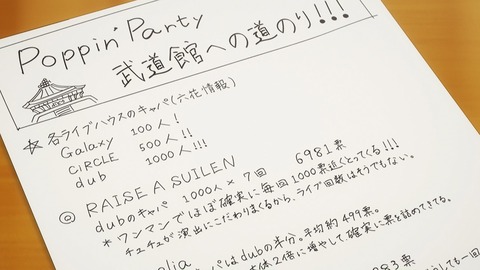 Poppin' Party
武道館への道のり!!!
☆ 各ライブハウスのキャパ(六花情報)
Galaxy 100人!
CiRCLE 500人!!
dub 1000人!!!
◎ RAISE A SUILEN 6981票
dubのキャパ 1000人 × 7回
*ワンマンでほぼ確実に毎回1000票近くとってくる!!!
チュチュが演出にこだわりまくるから、ライブ回数はそうでもない。
lia
パはdubの半分。平均約499票。
2倍に増やして、確実に票を詰めてきてる。
83票
しても一回